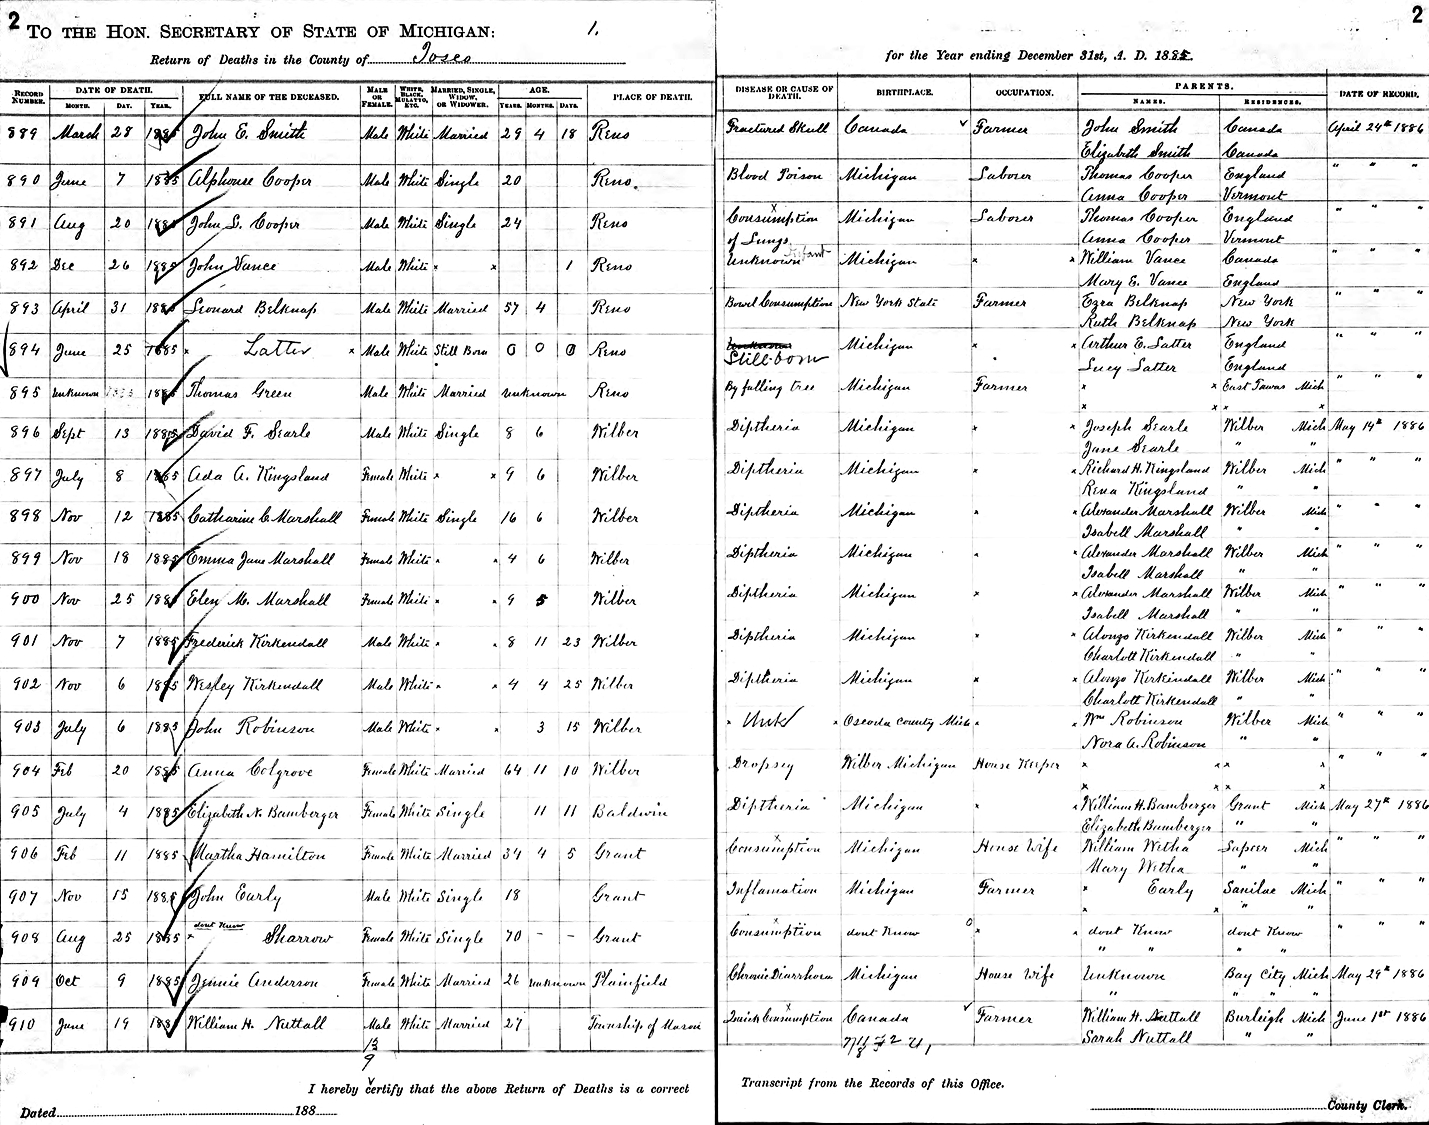 2
2
TO THE HON. SECRETARY OF STATE OF MICHIGAN: 1.
Return of Deaths in the County of Iosco for the Year ending December 31st, A. D. 1885.
RECORD NUMBER. DATE OF DEATH. MONTH. DAY. YEAR. FULL NAME OF THE DECEASED. MALE OR FEMALE. WHITE, BLACK, MULATTO, ETC. MARRIED, SINGLE, WIDOW, OR WIDOWER. AGE. YEARS. MONTHS. DAYS. PLACE OF DEATH. DISEASE OR CAUSE OF DEATH. BIRTHPLACE. OCCUPATION. PARENTS. NAMES. RESIDENCES. DATE OF RECORD.
889 March 28 1885 John E. Smith Male White Married 29 4 18 Reno Fractured Skull Canada Farmer John Smith Canada April 24th 1886
Elizabeth Smith Canada
890 June 7 1885 Alphouse Cooper Male White Single 20 Reno. Blood Poison Michigan Laborer Thomas Cooper England " " "
Anna Cooper Vermont
891 Aug 20 1885 John L. Cooper Male White Single 24 Reno Consumption Michigan Laborer Thomas Cooper England " " "
of Lungs Anna Cooper Vermont
892 Dec 26 1885 John Vance Male White × × 1 Reno Unknown Infant Michigan × × William Vance Canada " " "
Mary E. Vance England
893 April 31 1885 Leonard Belknap Male White Married 57 4 Reno Bowel Consumption New York State Farmer Ezra Belknap New York " " "
Ruth Belknap New York
894 June 25 1885 × Latter × Male White Still Born 0 0 0 Reno Unknown Michigan × × Arthur E. Latter England " " "
Still-born Lucy Latter England
895 Unknown 1885 Thomas Green Male White Married Unknown Reno By falling tree Michigan Farmer × × East Tawas Mich " " "
× × × ×
896 Sept 13 1885 David F. Searle Male White Single 8 6 Wilber Diptheria Michigan × × Joseph Searle Wilber Mich May 14th 1886
Jane Searle " "
897 July 8 1885 Ada A. Kingsland Female White × × 9 6 Wilber Diptheria Michigan × × Richard H. Kingsland Wilber Mich " " "
Rena Kingsland " "
898 Nov 12 1885 Catharine C. Marshall Female White Single 16 6 Wilber Diptheria Michigan × × Alexander Marshall Wilber Mich " " "
Isabell Marshall " "
899 Nov 18 1885 Emma Jane Marshall Female White × × 4 6 Wilber Diptheria Michigan × × Alexander Marshall Wilber Mich " " "
Isabell Marshall " "
900 Nov 25 1885 Elen M. Marshall Female White × × 9 5 Wilber Diptheria Michigan × × Alexander Marshall Wilber Mich " " "
Isabell Marshall " "
901 Nov 7 1885 Frederick Kirkendall Male White × × 8 11 23 Wilber Diptheria Michigan × × Alonzo Kirkendall Wilber Mich " " "
Charlott Kirkendall " "
902 Nov 6 1885 Wesley Kirkendall Male White × × 4 4 25 Wilber Diptheria Michigan × × Alonzo Kirkendall Wilber Mich " " "
Charlott Kirkendall " "
903 July 6 1885 John Robinson Male White × × 3 15 Wilber × Unk × Oscoda County Mich × × Wm Robinson Wilber Mich " " "
Nora A. Robinson " "
904 Feb 20 1885 Anna Colgrove Female White Married 64 11 10 Wilber Dropsey Wilber Michigan House Keeper × × × × " " "
× × × ×
905 July 4 1885 Elizabeth N. Bamberger Female White Single 11 11 Baldwin Diptheria Michigan × × William H. Bamberger Grant Mich May 27th 1886
Elizabeth Bamberger " "
906 Feb 11 1885 Martha Hamilton Female White Married 34 4 5 Grant Consumption Michigan House Wife William Wetha Lapeer Mich " " "
Mary Wetha " "
907 Nov 15 1885 John Early Male White Single 18 Grant Inflamation Michigan Farmer × Early Sanilac Mich " " "
× × " "
908 Aug 25 1885 × dont Know Sharrow Female White Single 70 - - Grant Consumption dont Know × × dont Know dont Know " " "
" " " "
909 Oct 9 1885 Jennie Anderson Female White Married 26 Unknown Plainfield Chronic Diarrhoea Michigan House Wife Unknown Bay City Mich May 29th 1886
" " " "
910 June 19 1885 William H. Nuttall Male White Married 27 Township of Mason Quick Consumption Canada Farmer William H. Nuttall Burleigh Mich June 1st 1886
Sarah Nuttall " "
13
9
I hereby certify that the above Return of Deaths is a correct Transcript from the Records of this Office.
Dated 188 County Clerk.